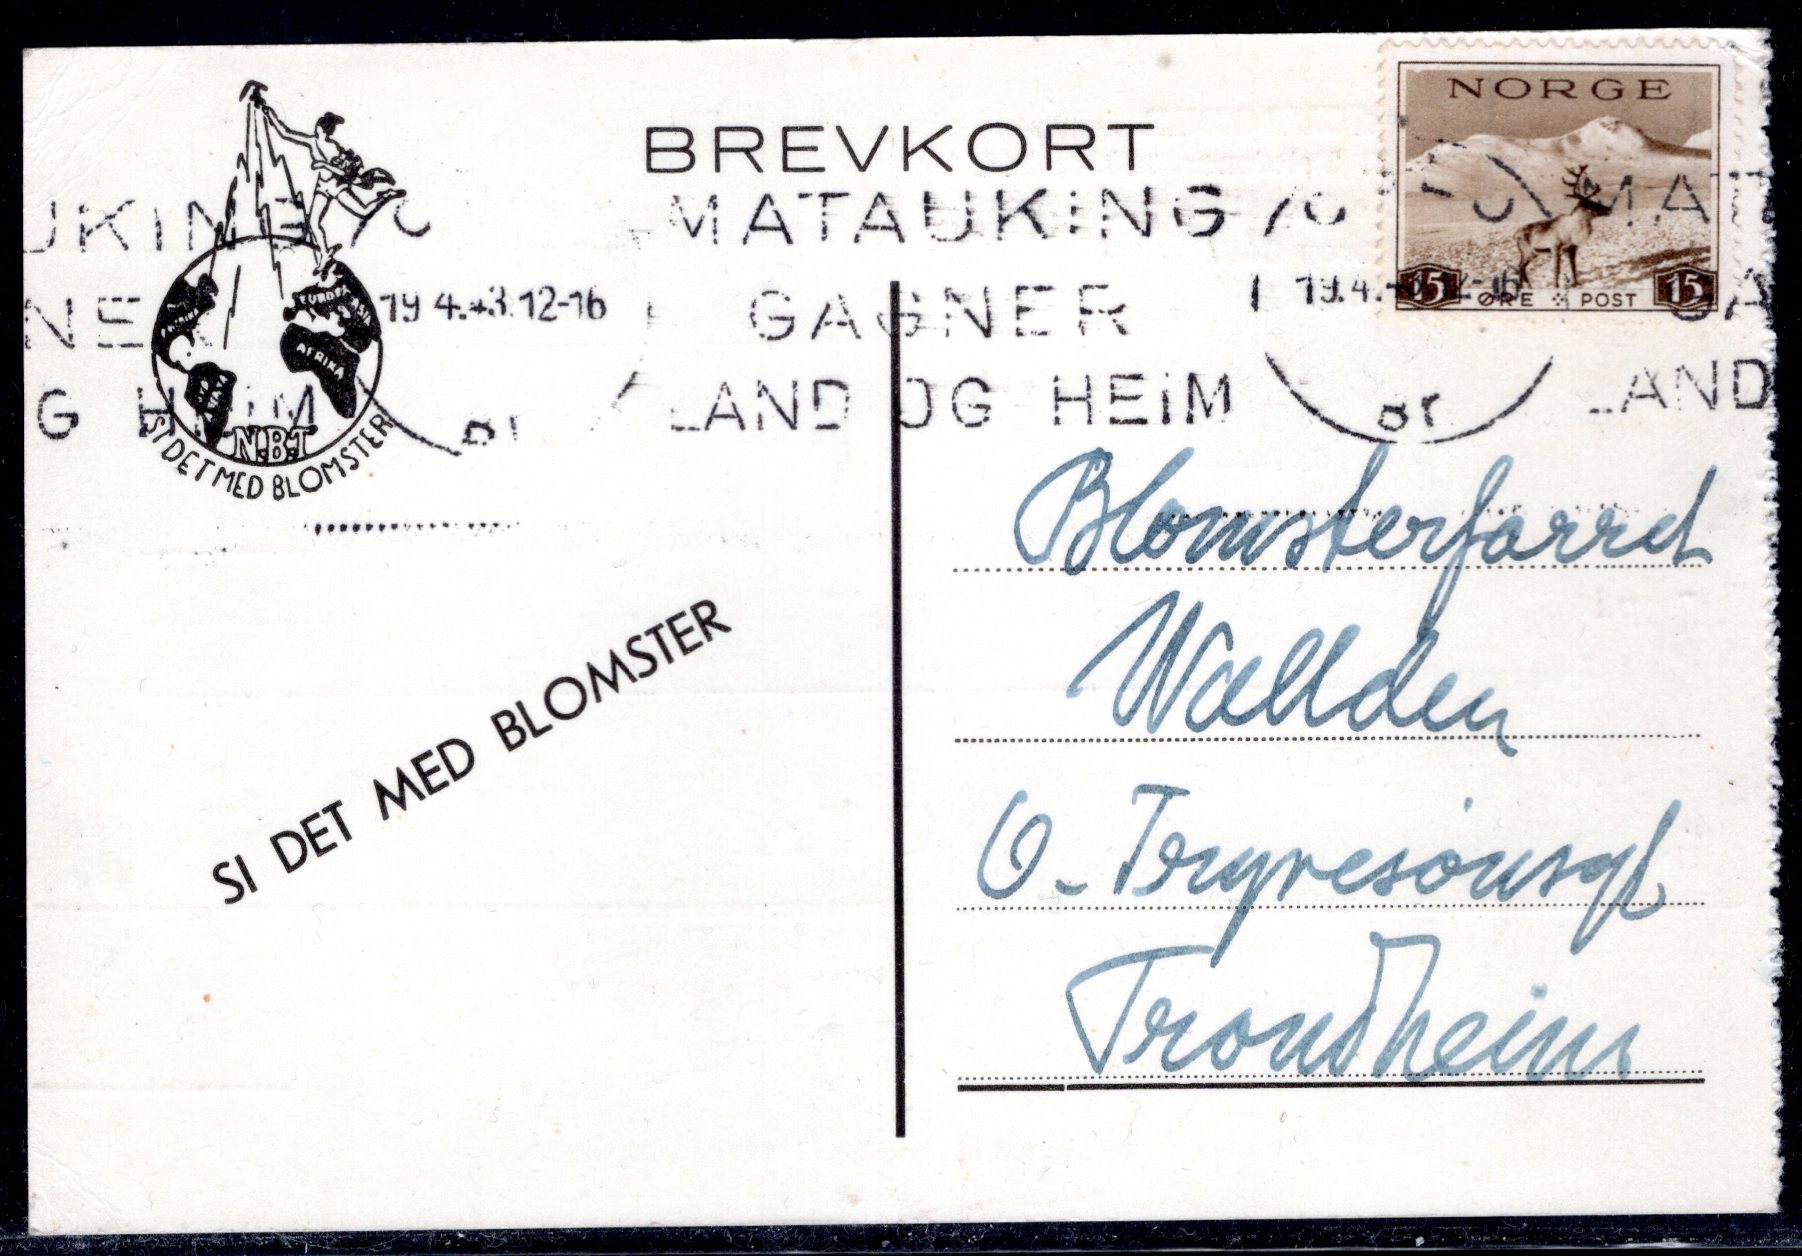 BREVKORT
NORGE
UKING
MATAUKING
MAT
19.4.43.12-16
GAGNER
19.4.43.12-16
15 ØRE POST 15
GA
NER
EUROPA
AFRIKA
G HEIM
LAND OG HEIM
Br
LAND
N.B.T
SI DET MED BLOMSTER
Blomsterforret
Wallden
SI DET MED BLOMSTER
O. Trygvesønsgt
Trondheim